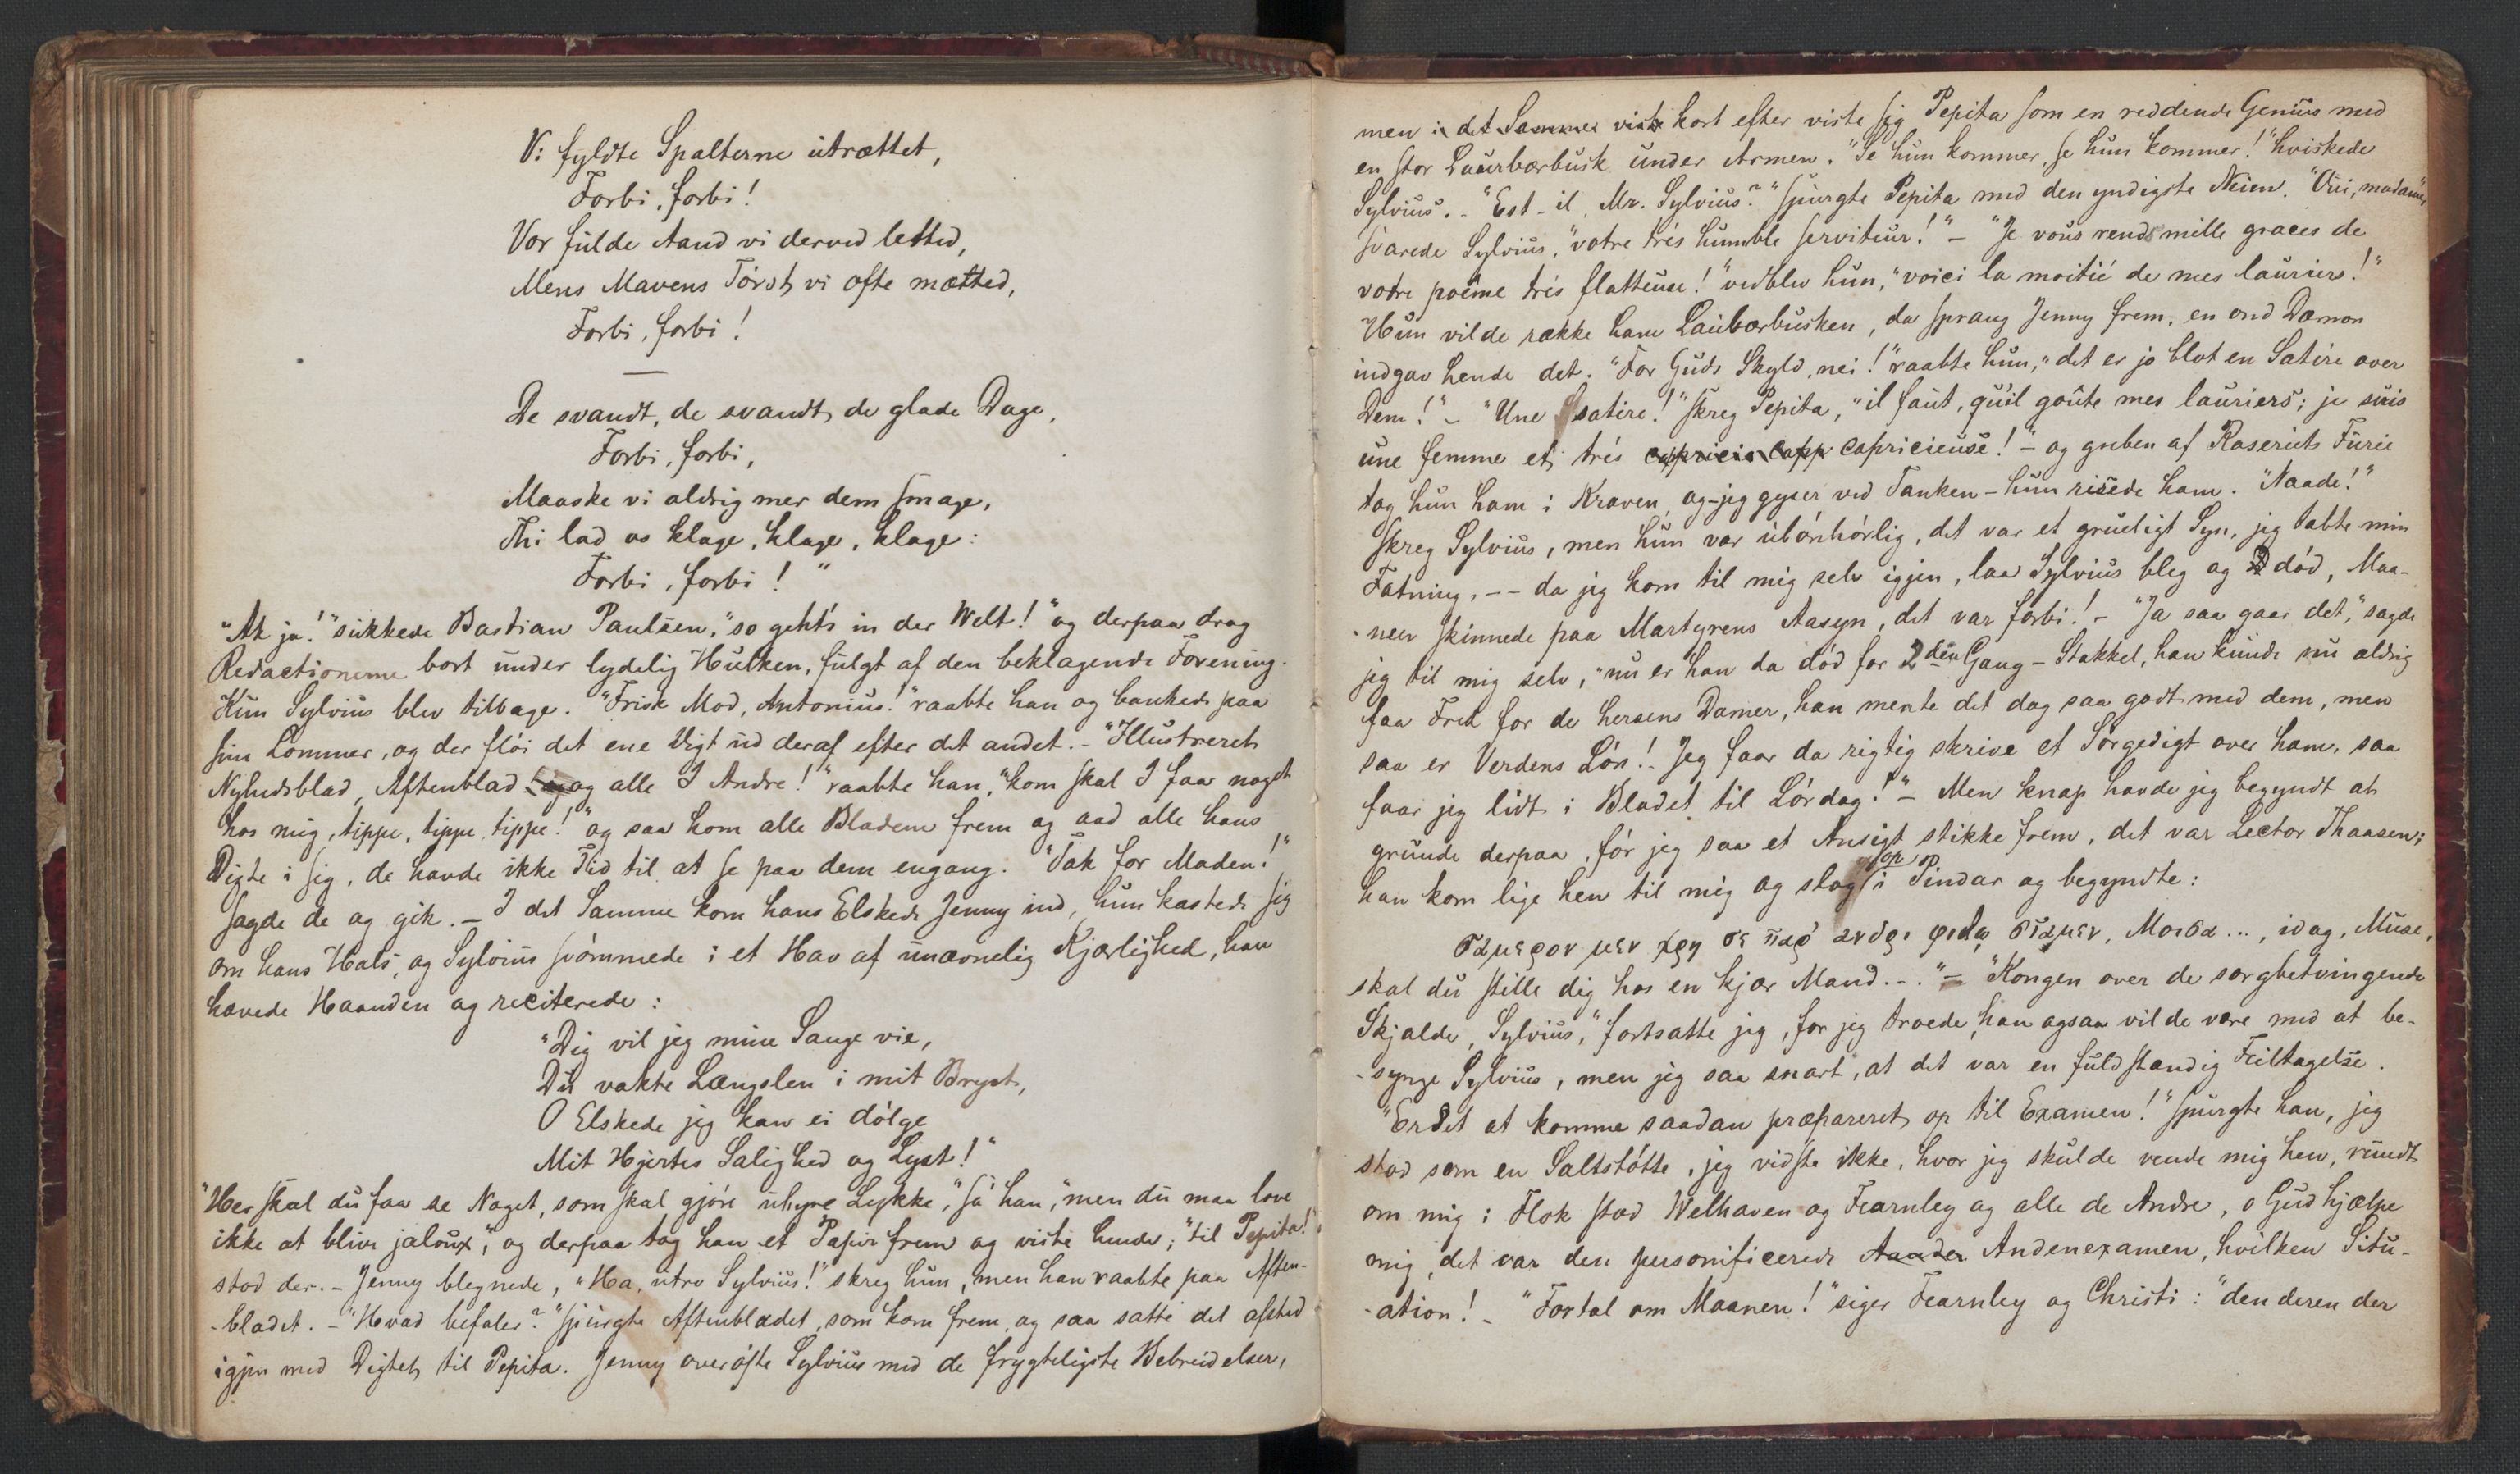 Vi fyldte Spalterne utrættet,
Forbi, forbi!
Vor fulde Aand vi derved letted,
Mens Mavens Tórst vi ofte mætted,
Forbi, forbi!
De svandt, de svandt, de glade Dage,
Forbi, forbi,
Maaske vi aldrig mer dem smage,
Thi lad os klage, klage, klage:
Forbi, forbi!"
"Ak ja!" sukkede Bastian Paulsen, "so geht's in der Welt!" og derpaa drog
Redactionerne bort under lydelig Hulken, fulgt af den beklagende Forening.
Kun Sylvius blev tilbage. "Frisk Mod, Antonius!" raabte han og bankede paa
sine Lommer, og der flói det ene Digt ud deraf efter det andet. - "Illustreret
Nyhedsblad, Aftenblad og og alle I Andre!" raabte han, "kom skal I faa noget
hos mig, tippe, tippe, tippe!" og saa kom alle Bladene frem og aad alle hans
Digte i sig, de havde ikke Tid til at se paa dem engang. "Tak for Maden!"
sagde de og gik. - I det Samme kom hans Elskede Jenny ind, hun kastede sig
om hans Hals, og Sylvius svómmede i et Hav af unævnelig Kjærlighed, han
hævede Haanden og reciterede:
"Dig vil jeg mine Sange vie,
Du vakte Længslen i mit Bryst,
O Elskede jeg kan ei dólge
Mit Hjertes Salighed og Lyst!"
"Her skal du faa se Noget, som skal gjóre uhyre Lykke," sa' han, "men du maa love
ikke at blive jaloux," og derpaa tog han et Papir frem og viste hende; "til Pepita!"
stod der. - Jenny blegnede, "Ha, utro Sylvius!" skreg hun, men han raabte paa Aften-
-bladet. - "Hvad befaler?" spurgte Aftenbladet, som kom frem, og saa satte det afsted
igjen med Digtet til Pepita. Jenny overóste Sylvius med de frygteligste Bebreidelser,
men i det Samme viste kort efter viste sig Pepita som en reddende Genius med
en stor Laurbærbusk under Armen. "Se hun kommer, se hun kommer!" hviskede
Sylvius. - "Est-il, Mr. Sylvius?" spurgte Pepita med den yndigste Neien. "Oui, madame"
svarede Sylvius, "votre trés humble serviteur!" - "Je vous rends mille graces de
votre poême trés flatteuse!" vedblev hun, "voici la moitié de mes lauriers!"
Hun vilde række ham Laubærbusken, da sprang Jenny frem, en ond Dæmon
indgav hende det. "For Guds Skyld, nei!" raabte hun, "det er jo blot en Satire over
Dem!" - "Une satire!" skreg Pepita, "il faut, qu'il goûte mes lauriers; je suis
une femme et trés capricieuse!" - og greben af Raseriets Furie
tog hun ham i Kraven, og - jeg gyser ved Tanken - hun risede ham. "Naade!"
skreg Sylvius, men hun var ubónhórlig, det var et grueligt Syn, jeg tabte min
Fatning, -- da jeg kom til mig selv igjen, laa Sylvius bleg og dód, Maa-
-nen skinnede paa Martyrens Aasyn, det var forbi! - "Ja saa gaar det," sagde
jeg til mig selv, "nu er han da dód for 2den Gang - Stakkel, han kunde nu aldrig
faa Fred for de hersens Damer, han mente det dog saa godt med dem, men
saa er Verdens Lón! Jeg faar da rigtig skrive et Sórgedigt over ham, saa
faar jeg lidt i Bladet til Lórdag!" - Men knap havde jeg begyndt at
grunde derpaa, fór jeg saa et Ansigt stikke frem, det var Lector Thaasen;
han kom lige hen til mig og slog op i Pindar og begyndte:
σαμερον μεν χρη σε παρ' ανδρι φιλω σταμεν, Μοισα..., idag, Muse,
skal du stille dig hos en kjær Mand..." - "Kongen over de sorgbetvingende
Skjalde, Sylvius," fortsatte jeg, for jeg troede, han ogsaa vilde være med at be-
-synge Sylvius, men jeg saa snart, at det var en fuldstændig Feiltagelse.
"Er det at komme saadan præpareret op til Examen!" spurgte han, jeg
stod som en Saltstótte, jeg vidste ikke, hvor jeg skulde vende mig hen, rundt
om mig i Flok stod Welhaven og Fearnley og alle de Andre, o Gud hjælpe
mig, det var den personificerede Ander Andenexamen, hvilken Situ-
-ation! - "Fortæl om Maanen!" siger Fearnley og Christi: "den deren der